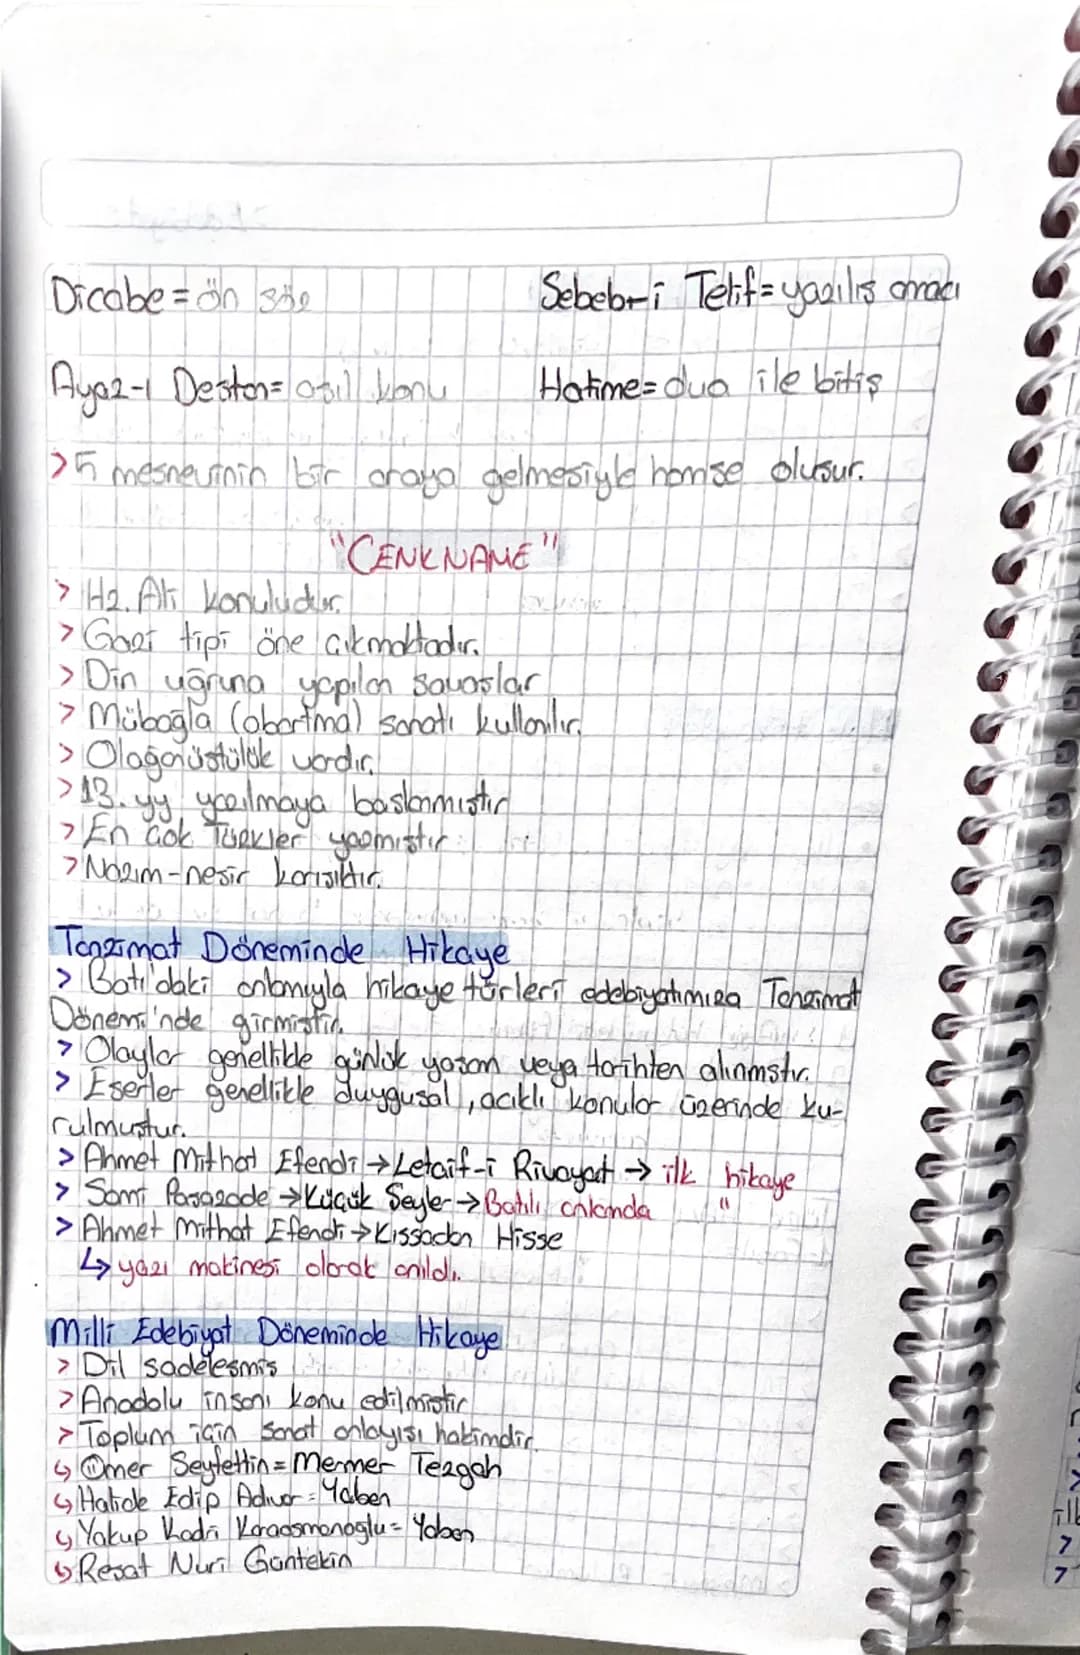 Dicabe = ön söz
Sebeb-i Telif = yazılış amacı
Ayaz-ı Destan = asıl konu
Hatime = dua ile bitiş
> 5 mesnevinin bir araya gelmesiyle hamse oluşur.
"CENKNAME"
> Hz. Ali konuludur.
> Gazi tipi öne çıkmaktadır.
> Din uğruna yapılan savaşlar
> Mübağla (abartma) sanatı kullanılır.
> Olağanüstülük vardır.
> 13. yy yazılmaya başlanmıştır
> En çok Türkler yazmıştır
> Nazım-nesir karışıktır.
Tanzimat Döneminde Hikaye
> Batı'daki anlamıyla hikaye türleri edebiyatımıza Tanzimat
Dönemi'nde girmiştir.
> Olaylar genellikle günlük yaşam veya tarihten alınmştır.
> Eserler genellikle duygusal, acıklı konular üzerinde ku-
rulmuştur.
> Ahmet Mithat Efendi → Letaif-i Rivayat → ilk hikaye
> Sami Paşazade → Küçük Şeyler → Batılı anlamda "
> Ahmet Mithat Efendi → Kıssadan Hisse
↳ yazı makinesi olarak anıldı.
Milli Edebiyat Döneminde Hikaye
> Dil sadeleşmiş
> Anadolu insanı konu edilmiştir
> Toplum için sanat anlayışı hakimdir.
↳ Ömer Seyfettin = Mermer Tezgah
↳ Halide Edip Adıvar = Yaban
↳ Yakup Kadri Karaosmanoglu = Yaban
↳ Reşat Nuri Güntekin